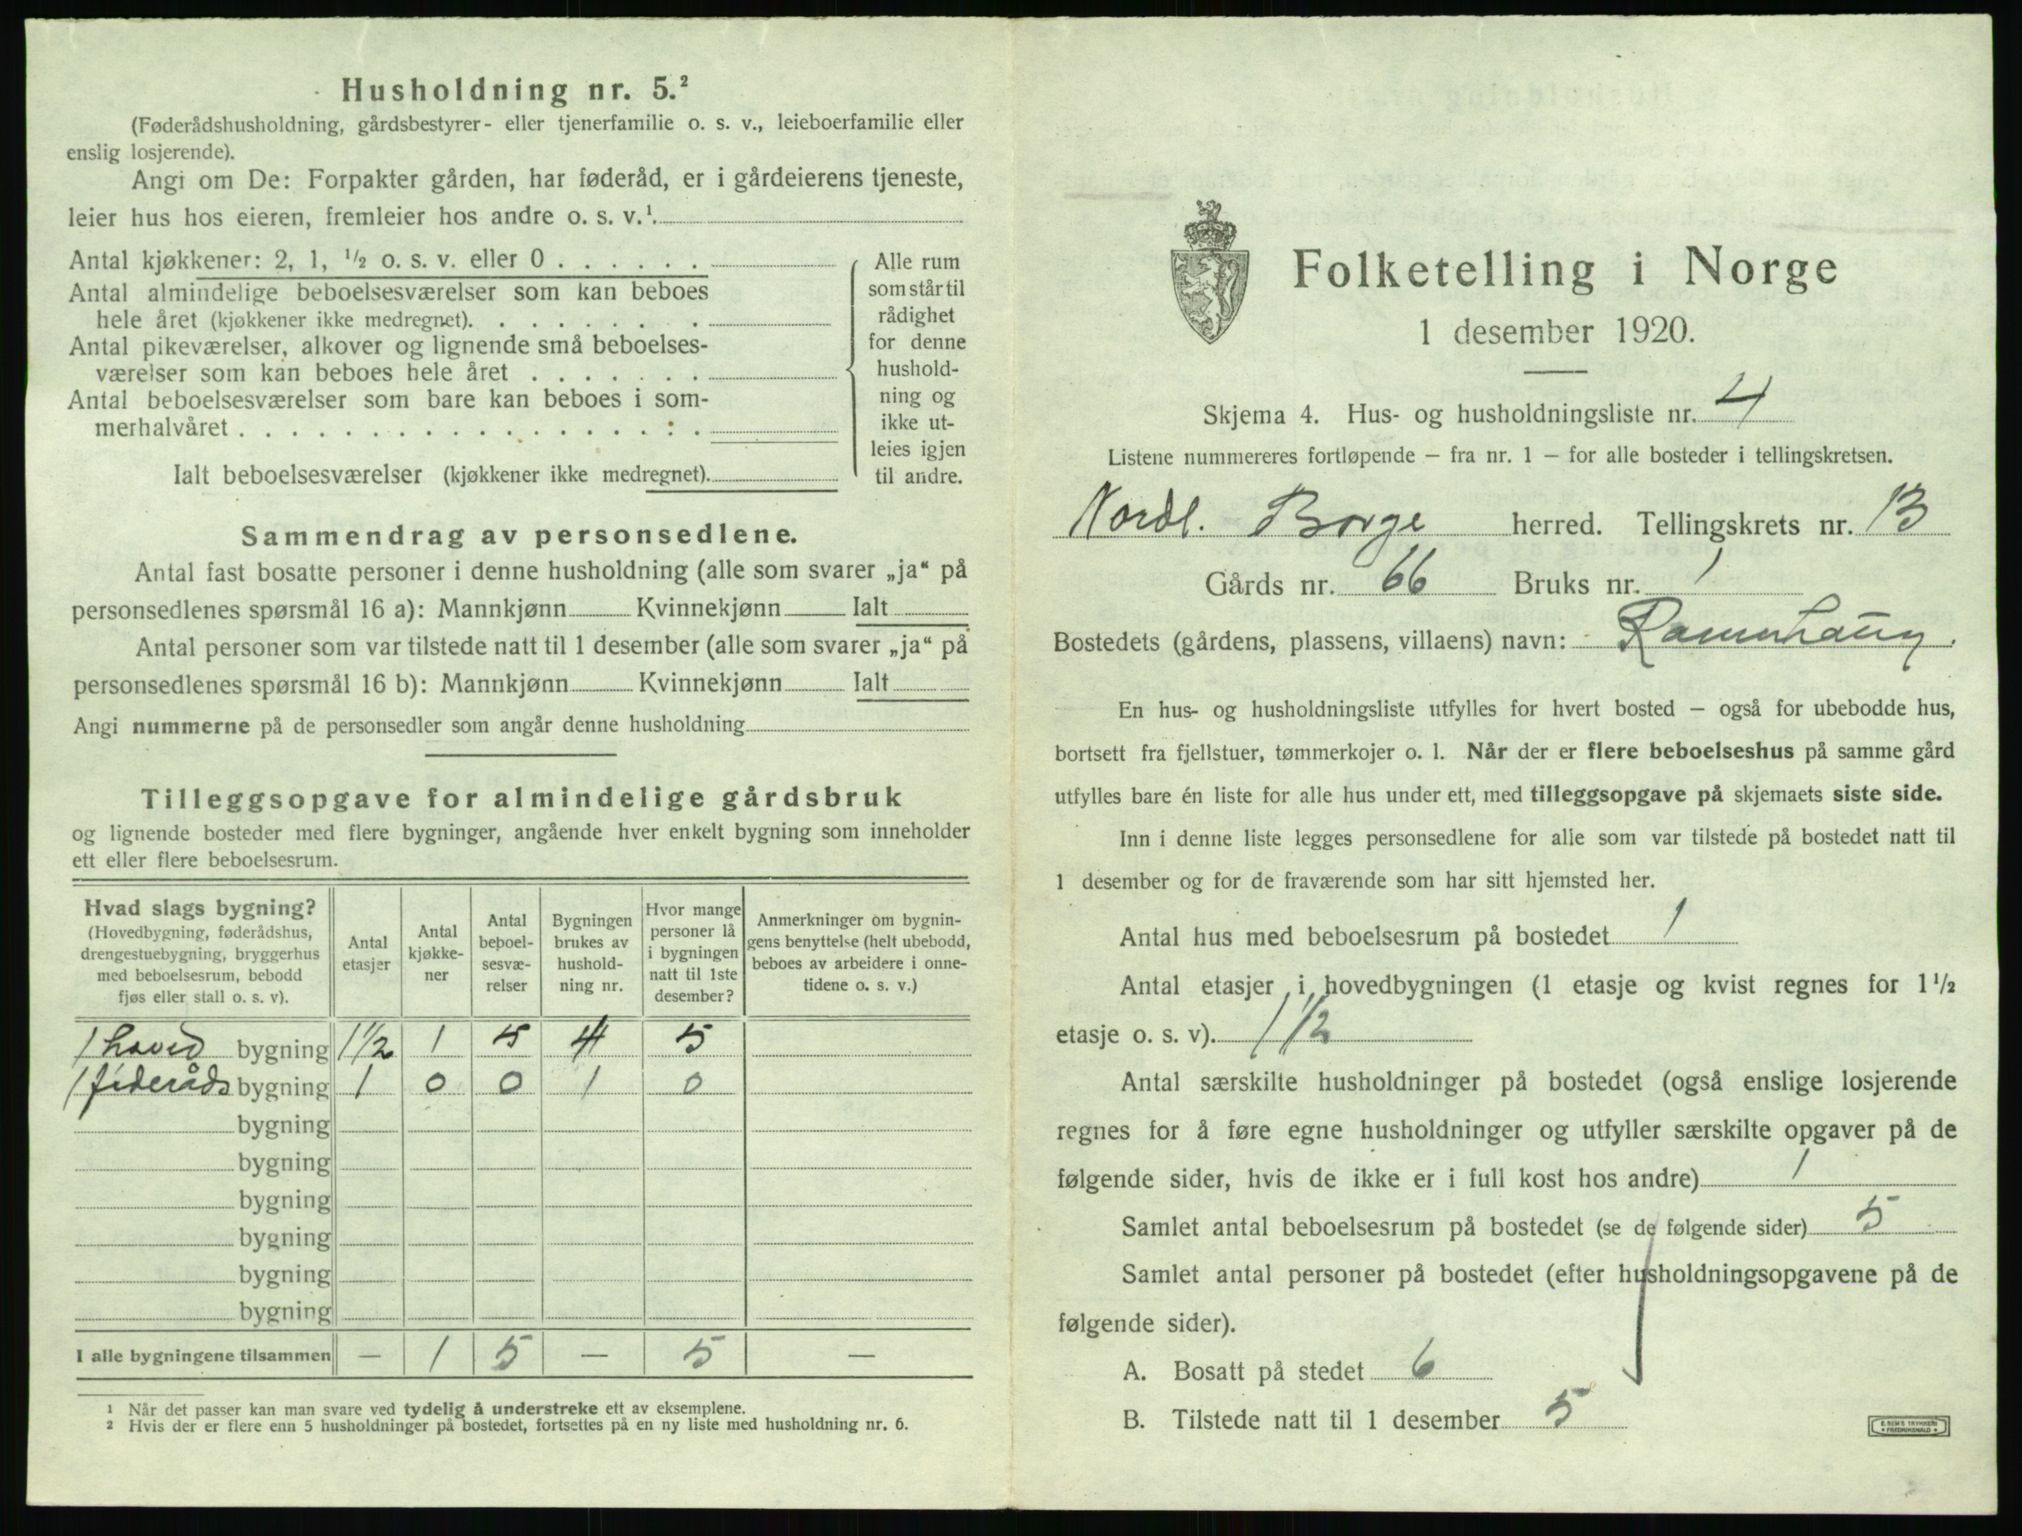 Husholdning nr. 5.²
(Føderådshusholdning, gårdsbestyrer- eller tjenerfamilie o. s. v., leieboerfamilie eller
enslig losjerende).
Angi om De: Forpakter gården, har føderåd, er i gårdeierens tjeneste,
leier hus hos eieren, fremleier hos andre o. s. v.¹.
Antal kjøkkener: 2, 1, ½ o. s. v. eller 0 . . . . . .
Antal almindelige beboelsesværelser som kan beboes
hele året (kjøkkener ikke medregnet). . . . . . . . .
Antal pikeværelser, alkover og lignende små beboelses-
værelser som kan beboes hele året . . . . . . .
Antal beboelsesværelser som bare kan beboes i som-
merhalvåret . . . . . . . . . . . . . . . . . .
Alle rum
som står til
rådighet
for denne
hushold-
ning og
ikke ut-
leies igjen
til andre.
Ialt beboelsesværelser (kjøkkener ikke medregnet).
Sammendrag av personsedlene.
Antal fast bosatte personer i denne husholdning (alle som svarer „ja“ på
personsedlenes spørsmål 16 a): Mannkjønn Kvinnekjønn Ialt
Antal personer som var tilstede natt til 1 desember (alle som svarer „ja“ på
personsedlenes spørsmål 16 b): Mannkjønn Kvinnekjønn Ialt
Angi nummerne på de personsedler som angår denne husholdning
Tilleggsopgave for almindelige gårdsbruk
og lignende bosteder med flere bygninger, angående hver enkelt bygning som inneholder
ett eller flere beboelsesrum.
Hvad slags bygning?
(Hovedbygning, føderådshus,
drengestuebygning, bryggerhus
med beboelsesrum, bebodd
fjøs eller stall o. s. v).
Antal
etasjer
Antal
kjøkke-
ner
Antal
beboel-
sesvæ-
relser
Bygningen
brukes av
hushold-
ning nr.
Hvor mange
personer lå
i bygningen
natt til 1ste
desember?
Anmerkninger om bygnin-
gens benyttelse (helt ubebodd,
beboes av arbeidere i onne-
tidene o. s. v.)
1 hoved bygning 1½ 1 5 4 5
1 føderåds bygning 1 0 0 1 0
bygning
bygning
bygning
bygning
bygning
bygning
I alle bygningene tilsammen — 1 5 — 5 —
¹ Når det passer kan man svare ved tydelig å understreke ett av eksemplene.
² Hvis der er flere enn 5 husholdninger på bostedet, fortsettes på en ny liste med husholdning nr. 6.
Folketelling i Norge
1 desember 1920.
Skjema 4. Hus- og husholdningsliste nr. 4
Listene nummereres fortløpende — fra nr. 1 — for alle bosteder i tellingskretsen.
Nordl. Borge herred. Tellingskrets nr. 13
Gårds nr. 66 Bruks nr. 1
Bostedets (gårdens, plassens, villaens) navn:
En hus- og husholdningsliste utfylles for hvert bosted — også for ubebodde hus,
bortsett fra fjellstuer, tømmerkojer o. l. Når der er flere beboelseshus på samme gård
utfylles bare én liste for alle hus under ett, med tilleggsopgave på skjemaets siste side.
Inn i denne liste legges personsedlene for alle som var tilstede på bostedet natt til
1 desember og for de fraværende som har sitt hjemsted her.
Antal hus med beboelsesrum på bostedet 1
Antal etasjer i hovedbygningen (1 etasje og kvist regnes for 1½
etasje o. s. v). 1½
Antal særskilte husholdninger på bostedet (også enslige losjerende
regnes for å føre egne husholdninger og utfyller særskilte opgaver på de
følgende sider, hvis de ikke er i full kost hos andre) 1
Samlet antal beboelsesrum på bostedet (se de følgende sider) 5
Samlet antal personer på bostedet (efter husholdningsopgavene på de
følgende sider).
A. Bosatt på stedet 6
B. Tilstede natt til 1 desember 5